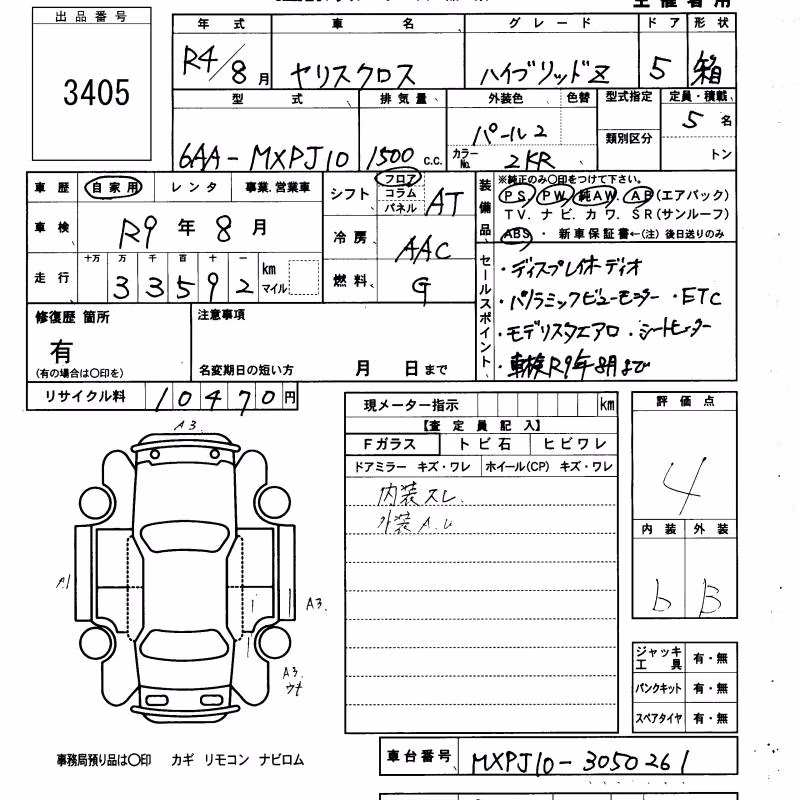 出品番号
3405
年式 車名 グレード ドア 形状
R4/8月 ヤリスクロス ハイブリッドZ 5 箱
型式 排気量 外装色 色替 型式指定 定員・積載
6AA-MXPJ10 1500 c.c. パール2 類別区分 5名
カラーNo. 2KR トン
車歴 自家用 レンタ 事業.営業車 シフト フロア コラム パネル AT
装備品 ※純正のみ〇印をつけて下さい。
PS. PW. 純AW. AB(エアバック)
TV. ナビ. カワ. SR(サンルーフ)
ABS・新車保証書←(注)後日送りのみ
車検 R9年8月 冷房 AAC
走行 十万 万 千 百 十 一
33592 km マイル 燃料 G
セールスポイント
・ディスプレイオーディオ
・パノラミックビューモニター ・ETC
・モデリスタエアロ ・シートヒーター
・車検R9年8月まで
修復歴 箇所 注意事項
有
(有の場合は〇印を) 名変期日の短い方 月 日まで
リサイクル料 10470円
現メーター指示 km
【査定員記入】
Fガラス トビ石 ヒビワレ
ドアミラー キズ・ワレ ホイール(CP) キズ・ワレ
内装スレ.
外装A.U
評価点
4
内装 外装
b B
A3.
A1
A3.
A3.
ウナ
ジャッキ工具 有・無
パンクキット 有・無
スペアタイヤ 有・無
事務局預り品は〇印 カギ リモコン ナビロム
車台番号 MXPJ10-3050261